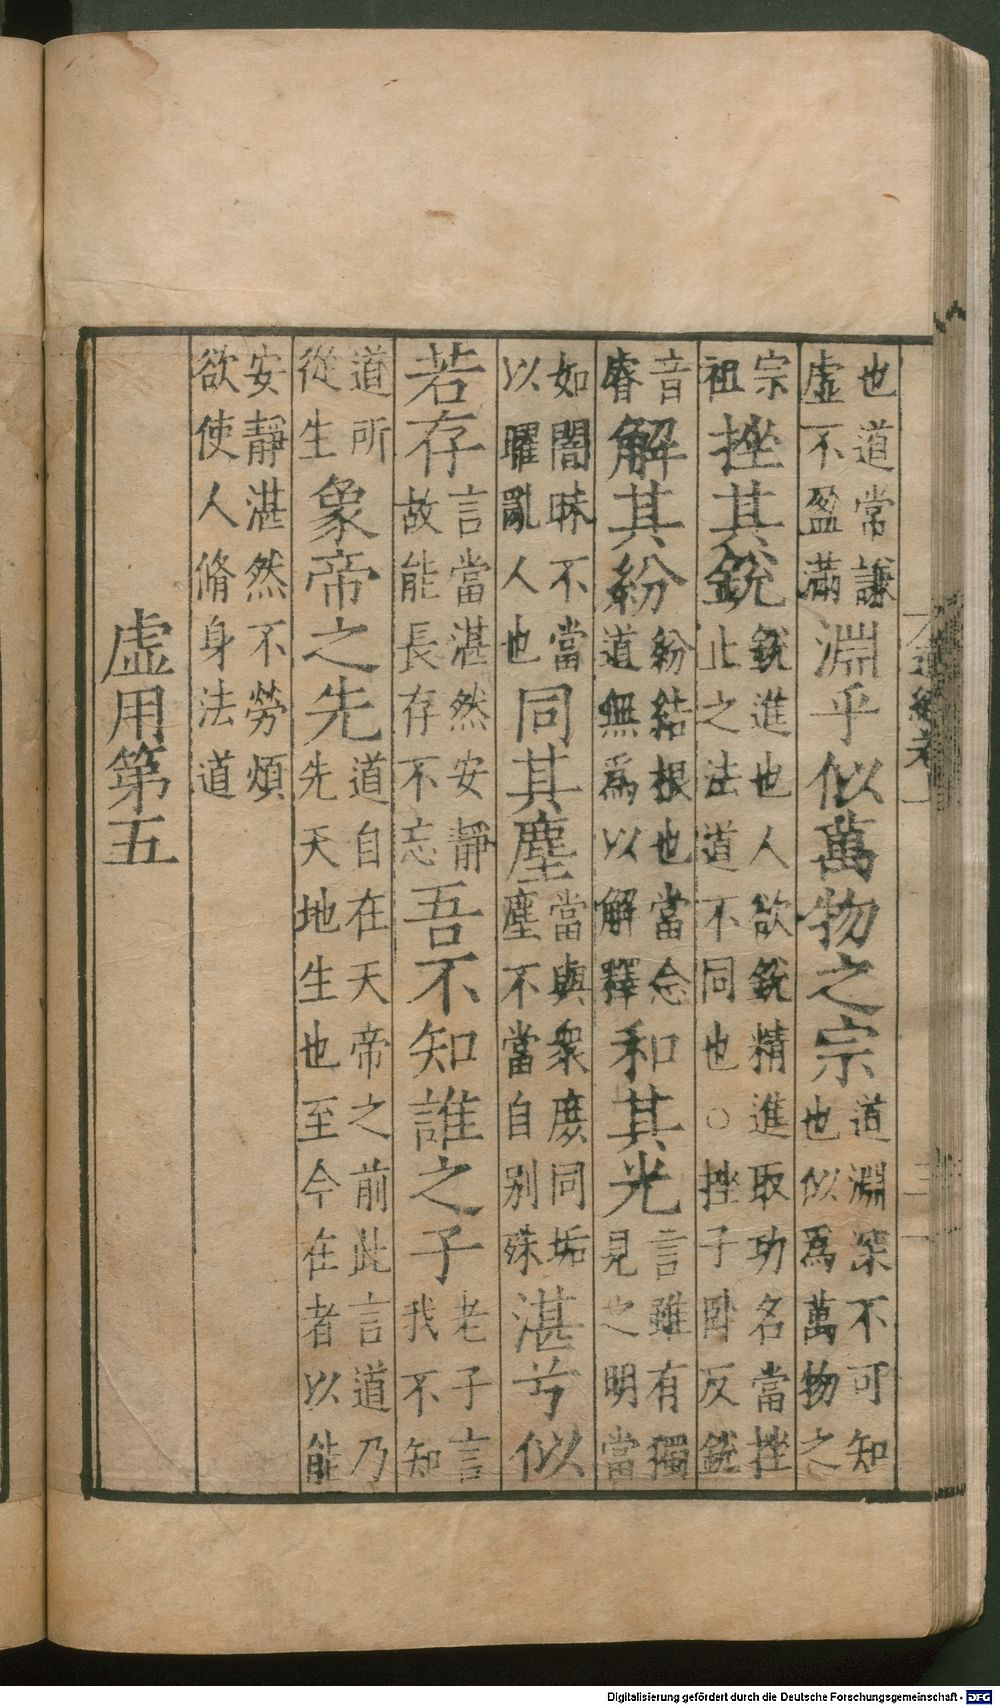 也道常謙虛不盈滿淵乎似萬物之宗道淵深不可知也似爲萬物之
宗祖挫其銳銳進也人欲銳精進取功名當挫止之法道不同也○挫子卧反銳
音睿解其紛紛結根也當念道無爲以解釋和其光言雖有獨見之明當
如闇昧不當以曜亂人也同其塵當與衆庶同垢塵不當自别殊湛兮似
若存言當湛然安靜故能長存不忘吾不知誰之子老子言我不知
道所從生象帝之先道自在天帝之前此言道乃先天地生也至今在者以能
安靜湛然不勞煩欲使人脩身法道
虛用第五
Digitalisierung gefördert durch die Deutsche Forschungsgemeinschaft - DFG